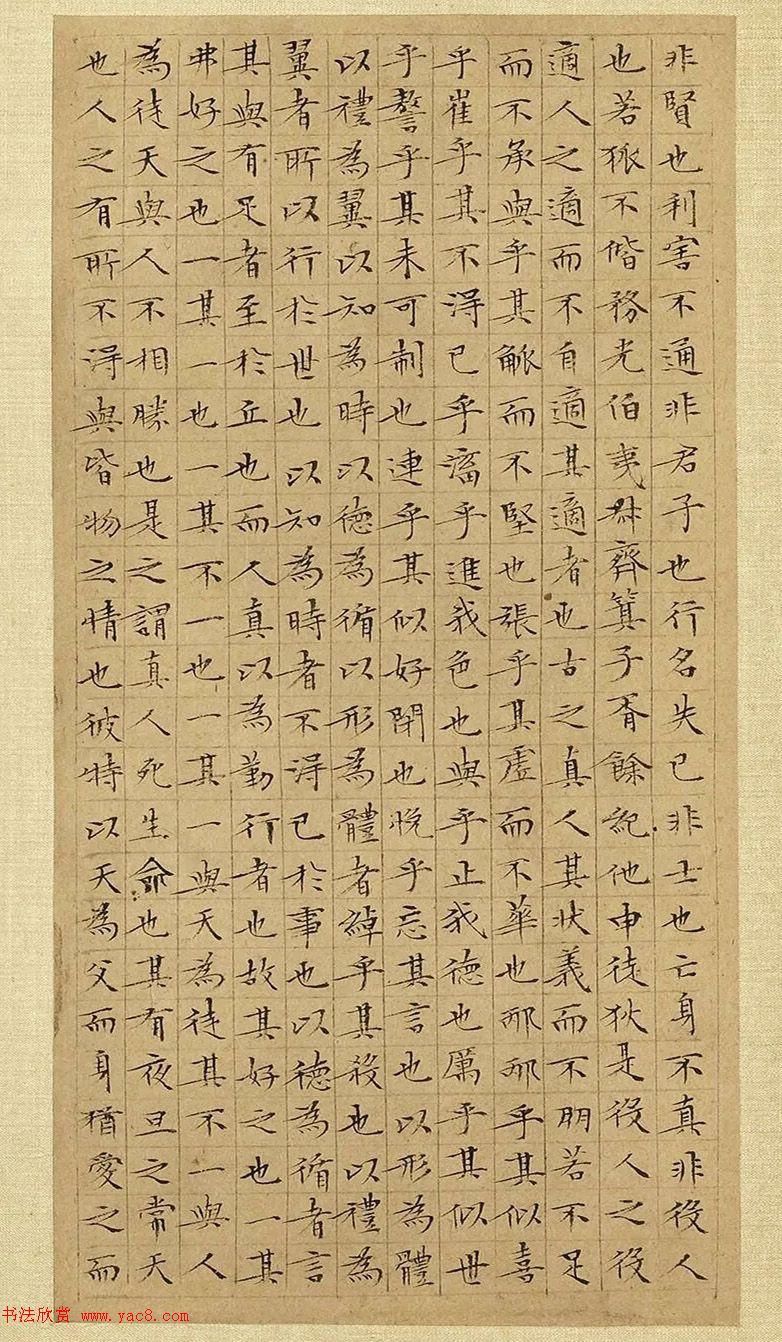 非賢也利害不通非君子也行名失己非士也亡身不真非役人
也若狐不偕務光伯夷叔齊箕子胥餘紀他申徒狄是役人之役
適人之適而不自適其適者也古之真人其狀義而不朋若不足
而不承與乎其觚而不堅也張乎其虛而不華也邴邴乎其似喜
乎崔乎其不得已乎滀乎進我色也與乎止我德也厲乎其似世
乎謷乎其未可制也連乎其似好閉也悗乎忘其言也以形為體
以禮為翼以知為時以德為循以形為體者綽乎其殺也以禮為
翼者所以行於世也以知為時者不得已於事也以德為循者言
其與有足者至於丘也而人真以為勤行者也故其好之也一其
弗好之也一其一也一其不一也一其一與天為徒其不一與人
為徒天與人不相勝也是之謂真人死生命也其有夜旦之常天
也人之有所不得與皆物之情也彼特以天為父而身猶愛之而
书法欣赏 www.yac8.com